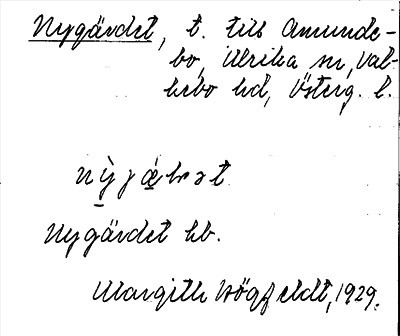 Nygärdet, t. till Amunde-
bo, Ulrika sn, Val-
kebo hd, Österg. l.
Nygärdet hb.
Margith Högfeldt, 1929.